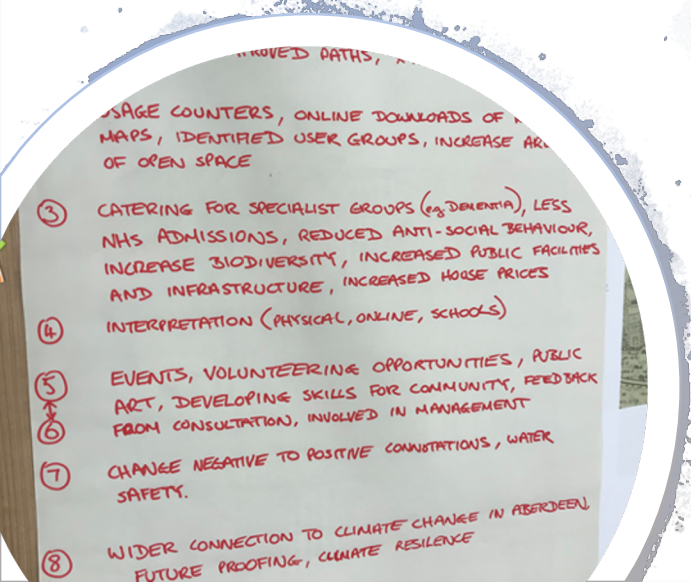 PATHS,
USAGE COUNTERS, ONLINE DOWNLOADS OF
MAPS, IDENTIFIED USER GROUPS, INCREASE
OF OPEN SPACE
③ CATERING FOR SPECIALIST GROUPS (eg DEMENTIA), LESS
NHS ADMISSIONS, REDUCED ANTI-SOCIAL BEHAVIOUR,
INCREASE BIODIVERSITY, INCREASED PUBLIC FACILITIES
AND INFRASTRUCTURE, INCREASED HOUSE PRICES
④ INTERPRETATION (PHYSICAL, ONLINE, SCHOOLS)
⑤ EVENTS, VOLUNTEERING OPPORTUNITIES, PUBLIC
ART, DEVELOPING SKILLS FOR COMMUNITY, FEEDBACK
⑥ FROM CONSULTATION, INVOLVED IN MANAGEMENT
⑦ CHANGE NEGATIVE TO POSITIVE CONNOTATIONS, WATER
SAFETY.
⑧ WIDER CONNECTION TO CLIMATE CHANGE IN ABERDEEN,
FUTURE PROOFING, CLIMATE RESILENCE